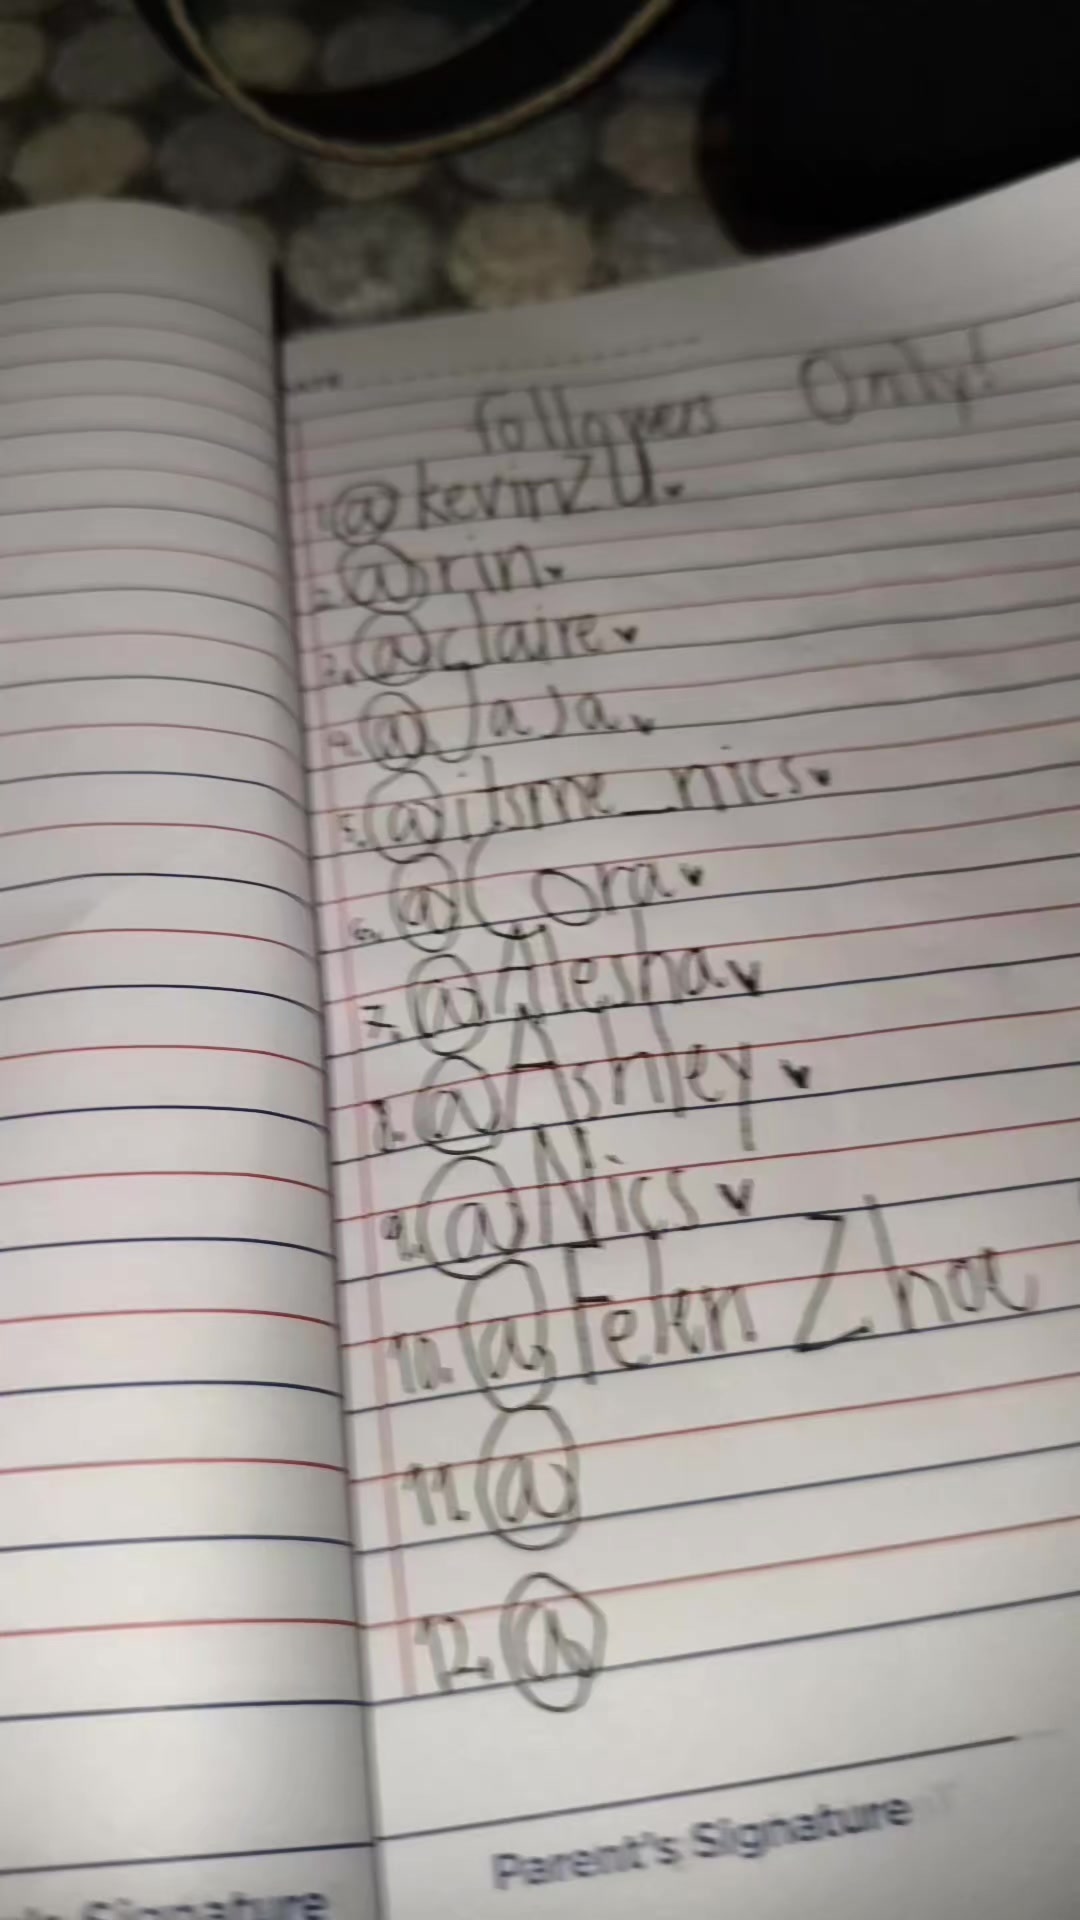 DATE
Followers Only!
1. @kevinzU
2. @rin
3. @claire
4. @JaJa
5. @itsme_nics
6. @Cora
7. @Alesha
8. @Ashley
9. @Nics
10. @Feken Zhoe
11. @
12. @
Parent's Signature
Signature